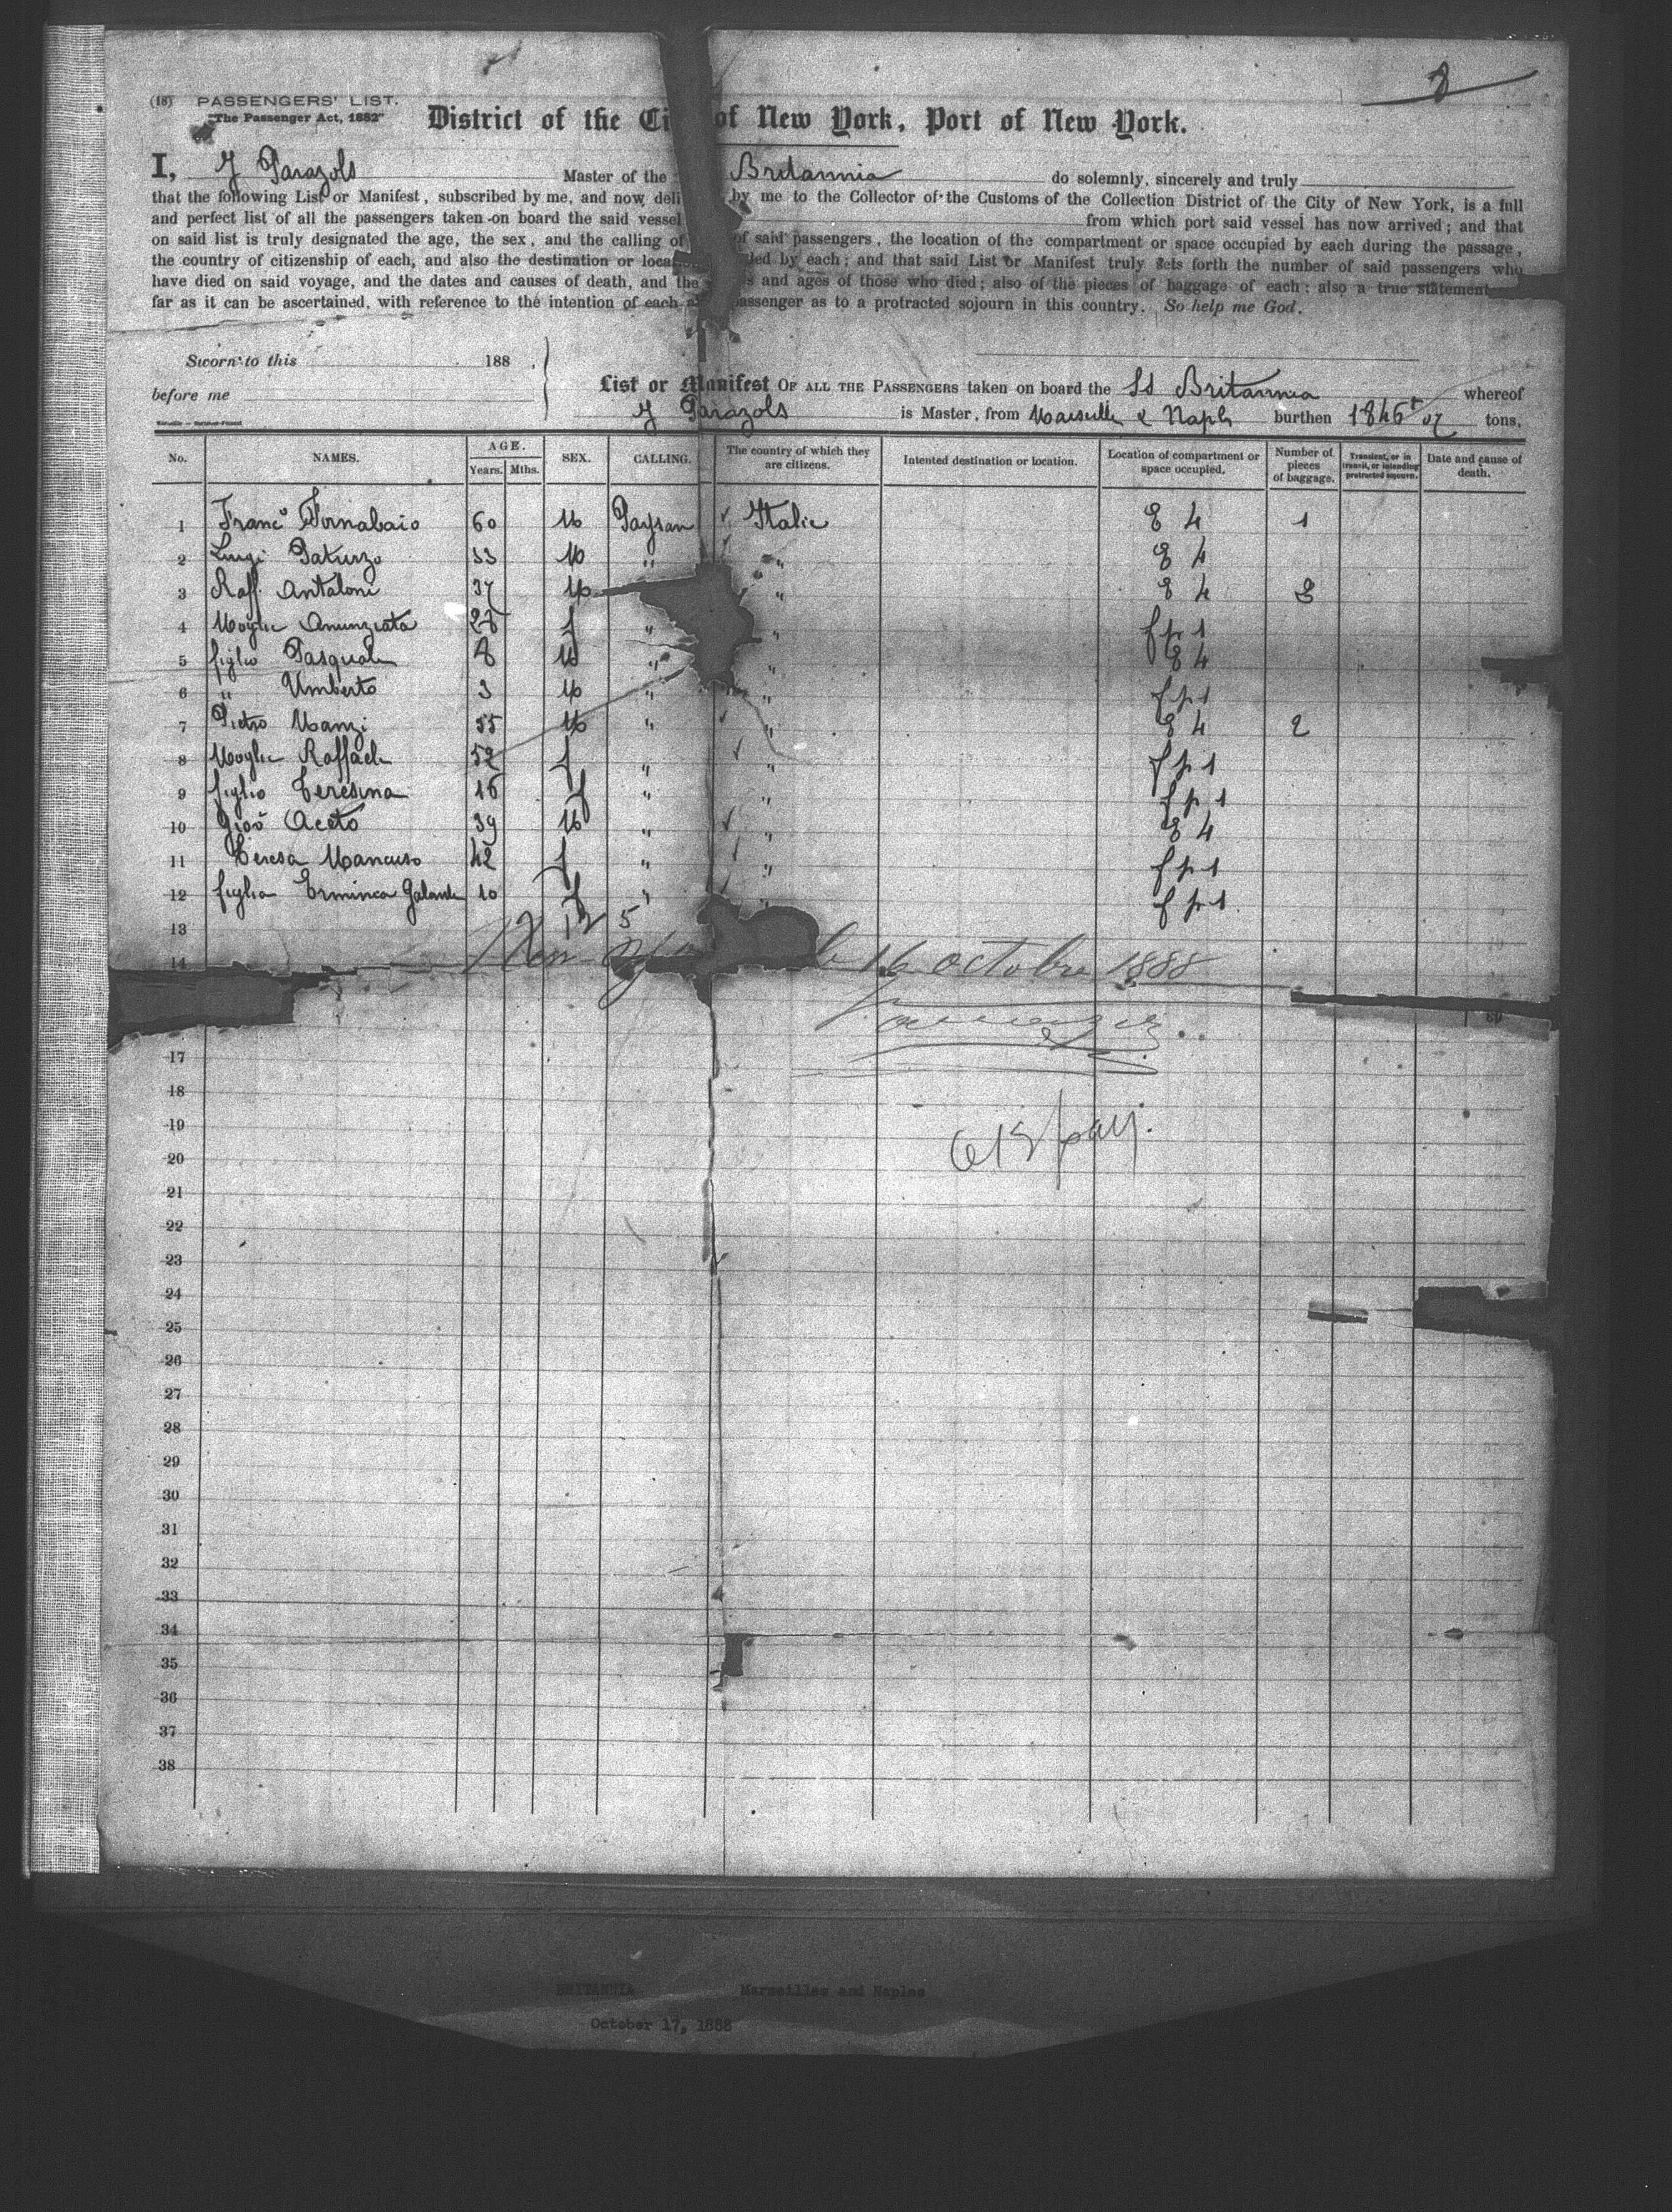 8
(18) PASSENGERS' LIST.
"The Passenger Act, 1882"
District of the Ci of New York, Port of New York.
I, J Parazols Master of the Britannia do solemnly, sincerely and truly
that the following List or Manifest, subscribed by me, and now deli by me to the Collector of the Customs of the Collection District of the City of New York, is a full
and perfect list of all the passengers taken on board the said vessel from which port said vessel has now arrived; and that
on said list is truly designated the age, the sex, and the calling of of said passengers, the location of the compartment or space occupied by each during the passage,
the country of citizenship of each, and also the destination or locat ded by each; and that said List or Manifest truly sets forth the number of said passengers who
have died on said voyage, and the dates and causes of death, and the s and ages of those who died; also of the pieces of baggage of each; also a true statement
far as it can be ascertained, with reference to the intention of each passenger as to a protracted sojourn in this country. So help me God.
Sworn to this 188 .
before me
List or Manifest OF ALL THE PASSENGERS taken on board the Ss Britannia whereof
J Parazols is Master, from Marseille & Naples burthen 1846 tons,
No. NAMES. AGE. Years. Mths. SEX. CALLING. The country of which they are citizens. Intented destination or location. Location of compartment or space occupied. Number of pieces of baggage. Transient, or in transit, or intending protracted sojourn. Date and cause of death.
1 Franco Tornabaio 60 M Paysan Italie E 4 1
2 Luigi Paturzo 33 M " " E 4
3 Raff. Antaloni 37 M " E 4 2
4 Moglie Anunziata 27 f " " f p 1
5 figlio Pasquale 8 M " " E 4
6 " Umberto 3 M " " f p 1
7 Pietro Manzi 55 M " " E 4 2
8 Moglie Raffaele 52 f " " f p 1
9 figlio Teresina 16 f " " f p 1
10 Giov Aceto 39 M " " E 4
11 Teresa Mancuso 42 f " " f p 1
12 figlia Erminca Galante 10 f " " f p 1
13 12 5
14 New-Y le 16 octobre 1888
17
18
19 615 pay.
20
21
22
23
24
25
26
27
28
29
30
31
32
33
34
35
36
37
38
BRITANNIA Marseilles and Naples
October 17, 1888